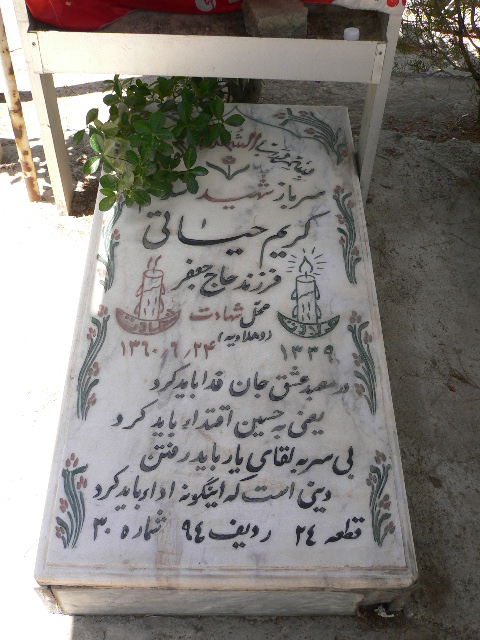 سرباز شهید
کریم حیاتی
فرزند حاج جعفر
محل شهادت
(دهلاویه)
ولادت ۱۳۳۹
شهادت ۱۳۶۰٫۶٫۲۴
در معبد عشق جان فدا باید کرد
یعنی به حسین اقتداء باید کرد
بی سر به لقای یار باید رفتن
دینی است که اینگونه اداء باید کرد
قطعه ۲۴ ردیف ۹۴ شماره ۳۰